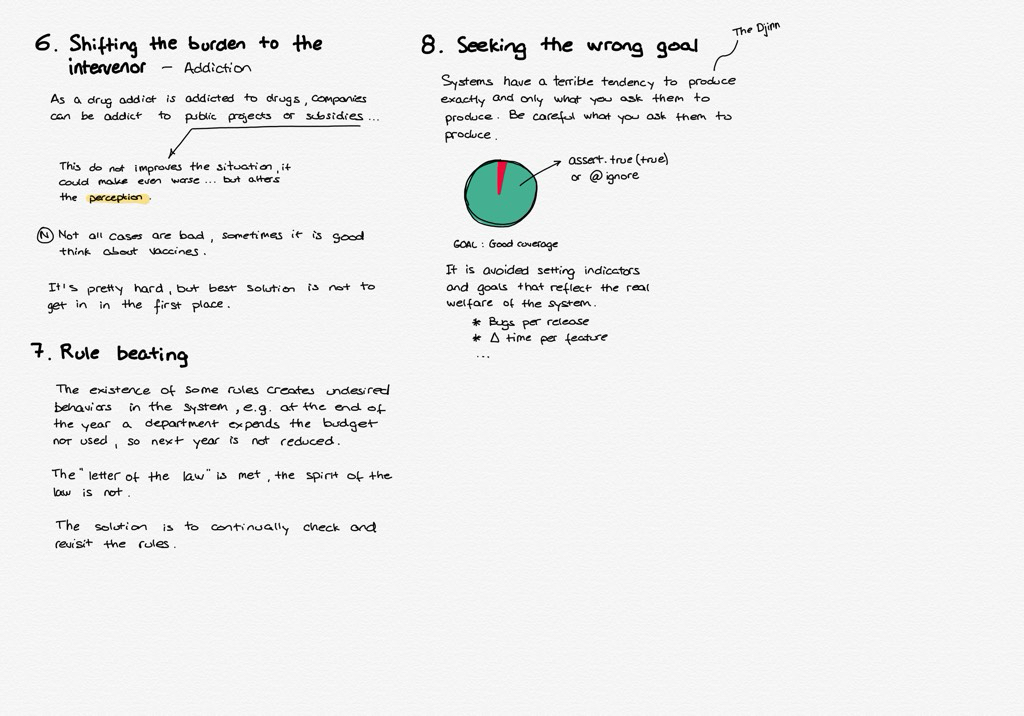 6. Shifting the burden to the
intervenor – Addiction
As a drug addict is addicted to drugs, companies
can be addict to public projects or subsidies...
This do not improves the situation, it
could make even worse... but alters
the perception.
N Not all cases are bad, sometimes it is good
think about vaccines.
It's pretty hard, but best solution is not to
get in in the first place.
7. Rule beating
The existence of some rules creates undesired
behaviors in the system, e.g. at the end of
the year a department expends the budget
not used, so next year is not reduced.
The "letter of the law" is met, the spirit of the
law is not.
The solution is to continually check and
revisit the rules.
8. Seeking the wrong goal
The Djinn
Systems have a terrible tendency to produce
exactly and only what you ask them to
produce. Be careful what you ask them to
produce.
assert.true(true)
or @ignore
GOAL: Good coverage
It is avoided setting indicators
and goals that reflect the real
welfare of the system.
* Bugs per release
* Δ time per feature
...